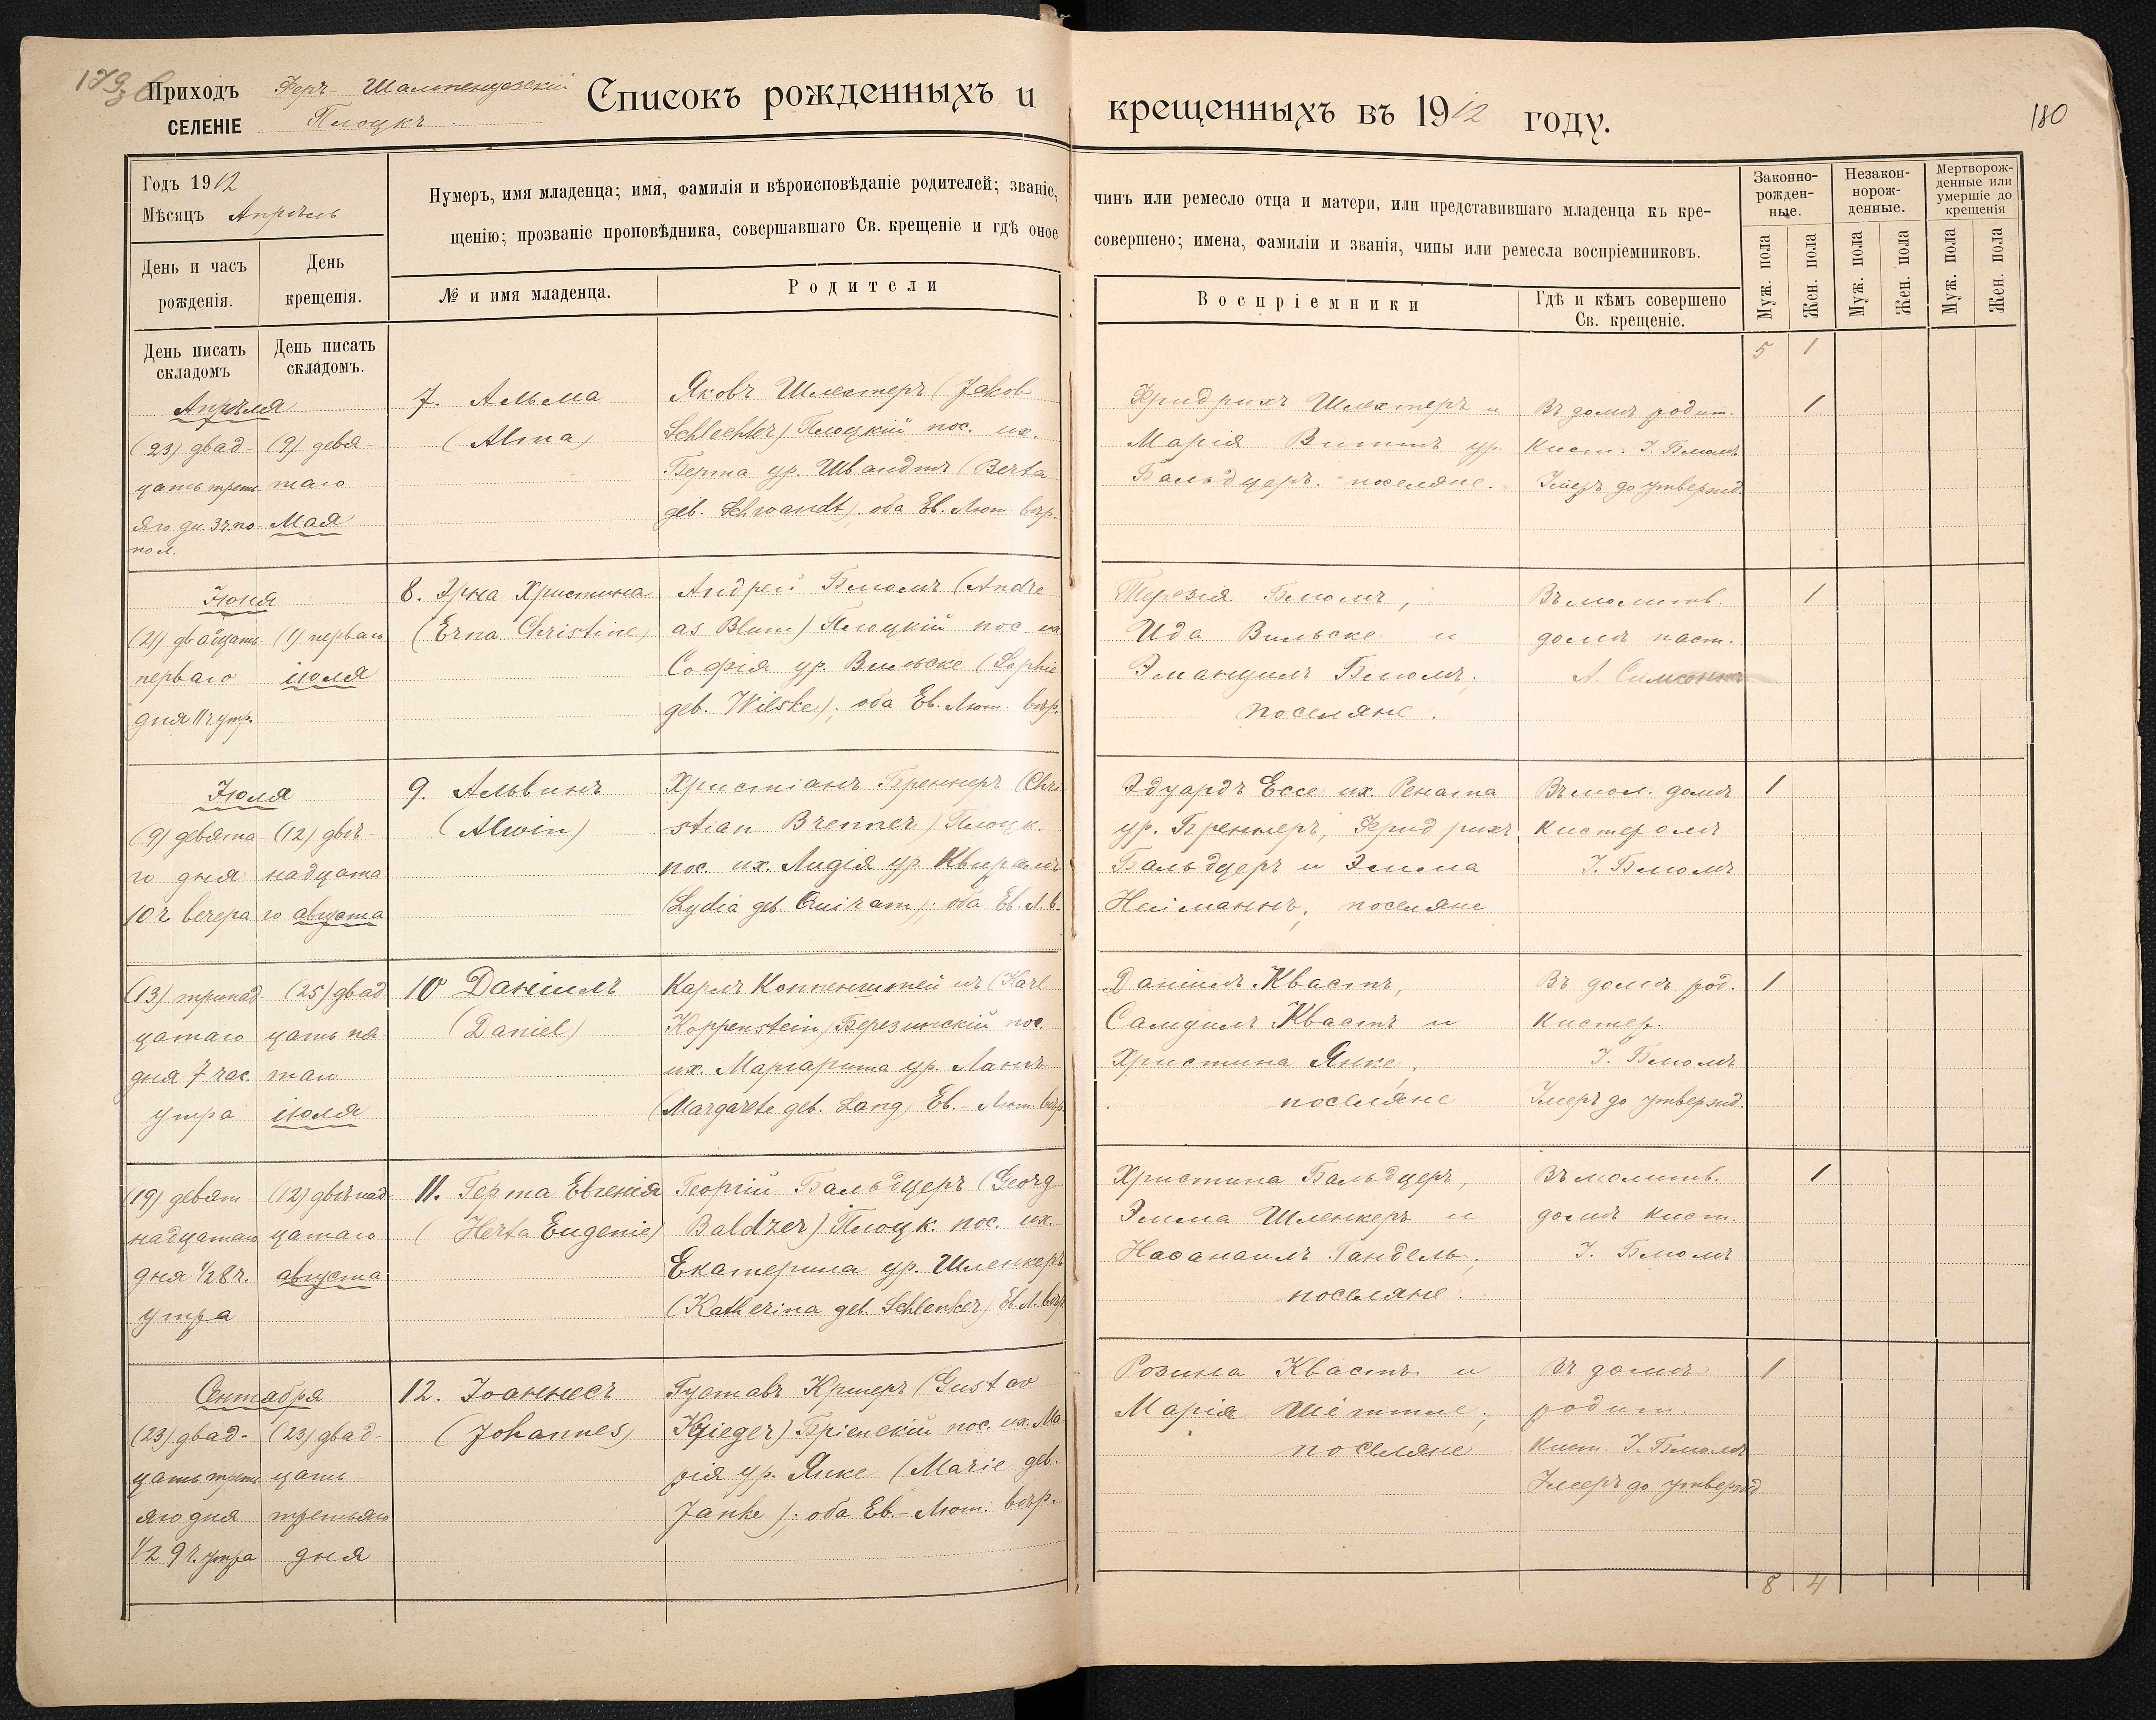 Приходъ Фер. Шампенуазскій
СЕЛЕНІЕ Плоцкъ
Списокъ рожденныхъ и крещенныхъ въ 1912 году.
180
Годъ 1912
Мѣсяцъ Апрѣль
Нумеръ, имя младенца; имя, фамилія и вѣроисповѣданіе родителей; званіе, чинъ или ремесло отца и матери, или представившаго младенца къ кре-
щенію; прозваніе проповѣдника, совершавшаго Св. крещеніе и гдѣ оное совершено; имена, фамиліи и званія, чины или ремесла воспріемниковъ.
День и часъ
рожденія.
День
крещенія.
№ и имя младенца.
Родители
Воспріемники
Гдѣ и кѣмъ совершено
Св. крещеніе.
Законно-
рожден-
ные.
Незакон-
норож-
денные.
Мертворож-
денные или
умершіе до
крещенія
Муж. пола
Жен. пола
Муж. пола
Жен. пола
Муж. пола
Жен. пола
День писать
складомъ
День писать
складомъ.
5 1
Апрѣля
(23) двад-
цать треть
яго дн. 3 ч. по
пол.
(9) девя-
таго
Мая
7. Альма
(Alma)
Яковъ Шлехтеръ (Jakob
Schlechter) Плоцкій пос. их.
Берта ур. Швандтъ (Berta
geb. Schwandt); оба Ев. Лют. вѣр.
Фридрихъ Шлехтеръ и
Марія Виттъ ур.
Бальдцеръ. поселяне.
Въ домѣ родит.
Кист. І. Блюмъ
Умеръ до утвержд.
1
Іюня
(21) двадцать
перваго
дня 11 ч утр.
(1) перваго
іюля
8. Эрна Христина
(Erna Christine)
Андрей Блюмъ (Andre
as Blum) Плоцкій пос их
Софія ур. Вильске (Sophie
geb. Wilske); оба Ев. Лют. вѣр.
Терезія Блюмъ,
Ида Вильске и
Эмануилъ Блюмъ;
поселяне.
Въ молитв.
домѣ паст.
1
Іюля
(9) девята
го дня
10 ч вечера
(12) двѣ-
надцата
го августа
9. Альвинъ
(Alwin)
Христіанъ Бреннеръ (Chri
stian Brenner) Плоцк.
пос. их. Лидія ур. Квирамъ
(Lydia geb. Quiram); оба Ев. Л. в.
Эдуардъ Ессе их. Рената
ур. Бреннеръ, Фридрихъ
Бальдцеръ и Эмма
Нейманнъ; поселяне
Въ мол. домѣ
кистеромъ
І. Блюмъ
1
(13) тринад
цатаго
дня 7 час.
утра
(25) двад
цать пя-
таго
іюля
10 Даніилъ
(Daniel)
Карлъ Коппенштейнъ (Karl
Koppenstein) Березинскій пос.
их. Маргарита ур. Лангъ
(Margarete geb. Lang) Ев.-Лют. вѣр.
Даніилъ Квастъ,
Самуилъ Квастъ и
Христина Янке,
поселяне
Въ домѣ род.
Кистер.
І. Блюмъ
Умеръ до утвержд.
1
(19) девят-
надцатаго
дня ½8 ч.
утра
(12) двѣнад
цатаго
августа
11. Герта Евгенія
(Herta Eugenie)
Георгій Бальдцеръ (Georg
Baldzer) Плоцк. пос. их.
Екатерина ур. Шленкеръ
(Katherina geb. Schlenker) Ев. Л. вѣр.
Христина Бальдцеръ,
Эмма Шленкеръ и
Насанаилъ Гандель;
поселяне.
Въ молитв.
домѣ кист.
І. Блюмъ
1
Сентября
(23) двад-
цать треть
яго дня
½ 9 ч. утра
(23) двад-
цать
третьяго
дня
12. Іоаннесъ
(Johannes)
Густавъ Кригеръ (Gustav
Krieger) Бріенскій пос. их. Ма
рія ур. Янке (Marie geb.
Janke); оба Ев.-Лют. вѣр.
Розина Квастъ и
Марія Шётле;
поселяне
Въ домѣ
родит.
Кист. І. Блюмъ
Умеръ до утвержд
1
8 4